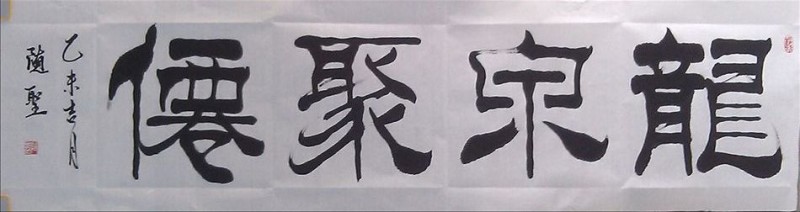 龍泉聚僊
乙未吉月
隨聖